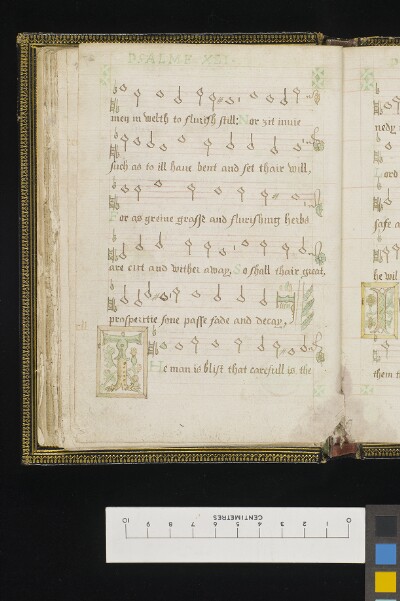 PSALME XLI
men in welth to flurish still: Nor zit invie
such as to ill have bent and set thair will,
For as greine grasse and flurishing herbs
are cut and wither away, So shall thair great,
prosperitie sone passe fade and decay,
The man is blist that carefull is the
ord
safe a
he wil
them t
10 9 8 7 6 5 4 3 2 1 0
CENTIMETRES